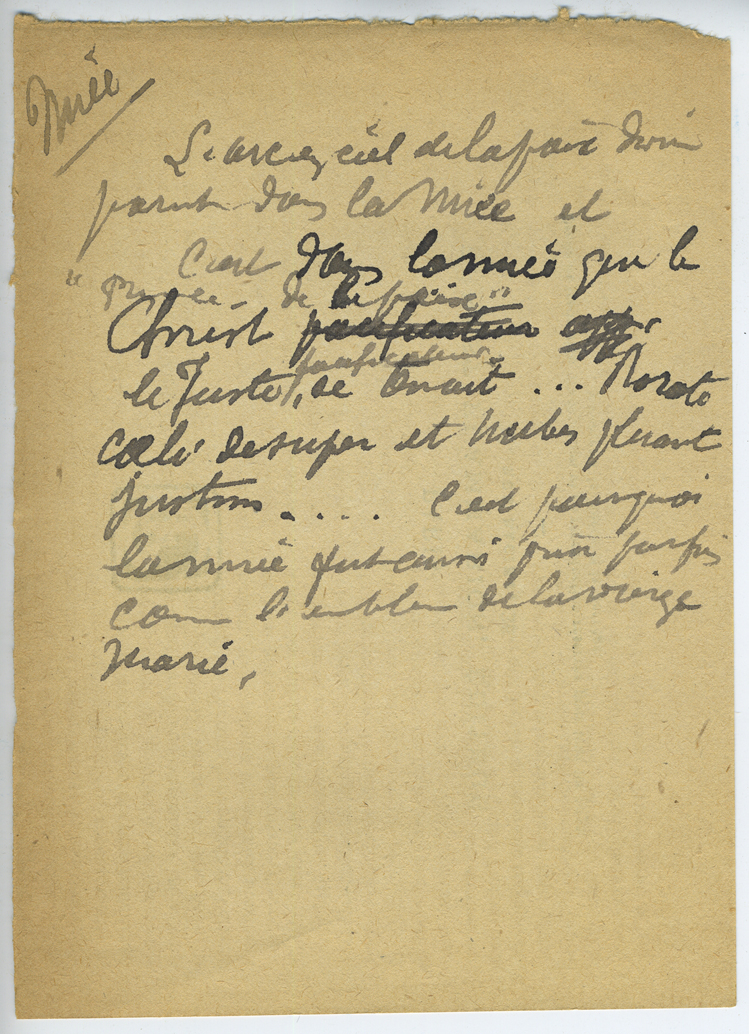 Nuée
L'arc en ciel de la paix divin
parut dans la Nuée et
c'est dans la nuée que le
"prince de la paix"
Christ pacificateur
pacificateur
le Juste, se ... Rorate
cœli desuper et nubes pluant
justum .... C'est pourquoi
la nuée fut aussi prise parfois
comme l'emblème de la vierge
Marie,